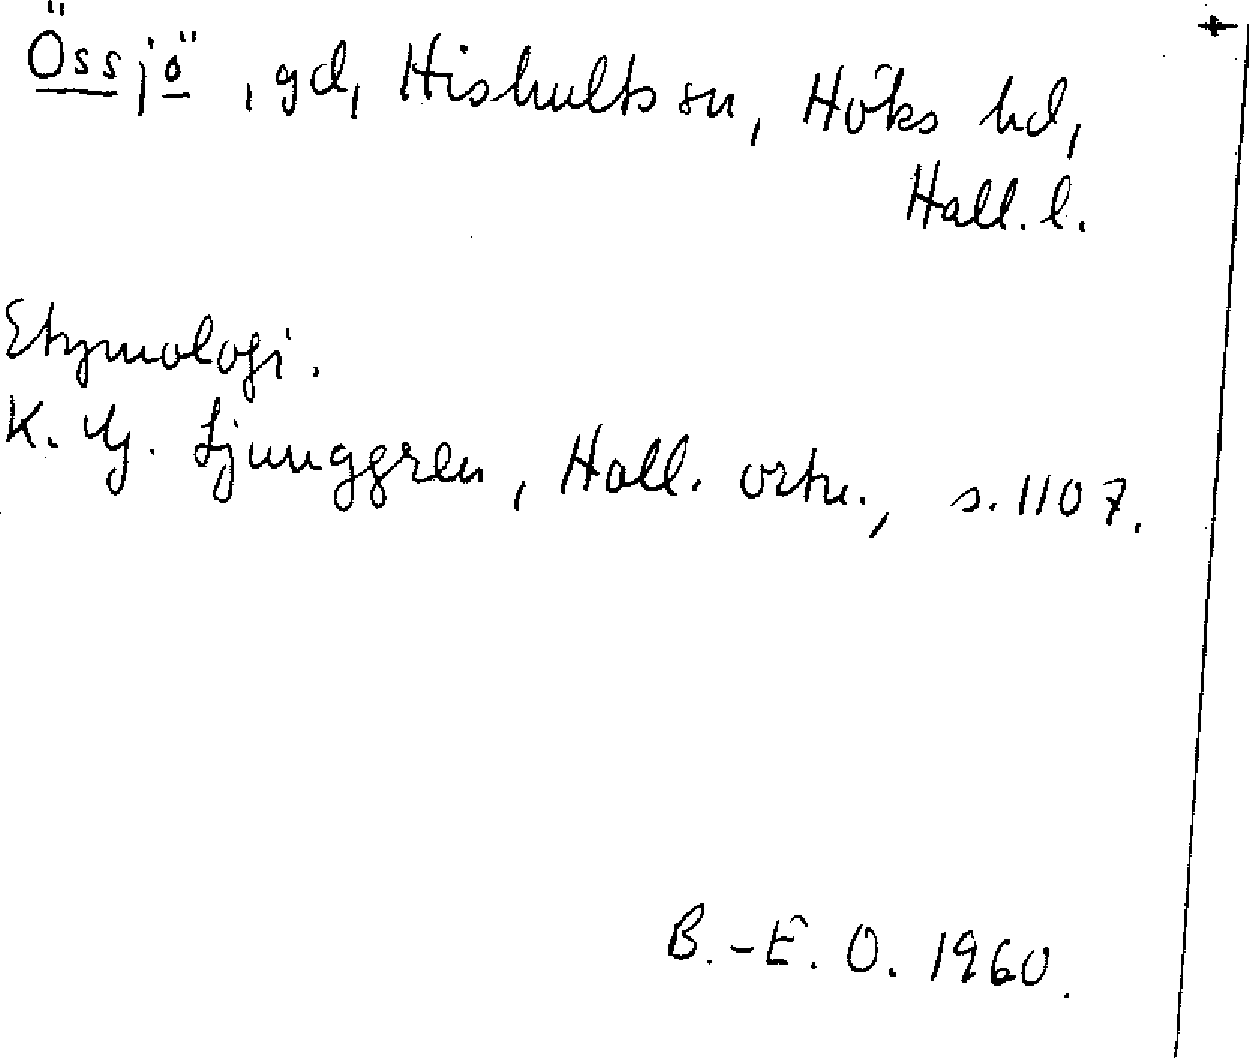 Össjö, gd, Hishults sn, Höks hd,
Hall. l.
Etymologi.
K. G. Ljunggren, Hall. ortn., s. 1107.
B.-E. O. 1960.